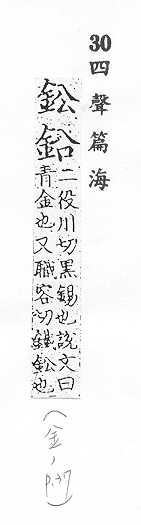 30 四聲篇海
鈆鉛
二役川切黑錫也說文曰
青金也又職容切鐵鈆也
(金, P.37)